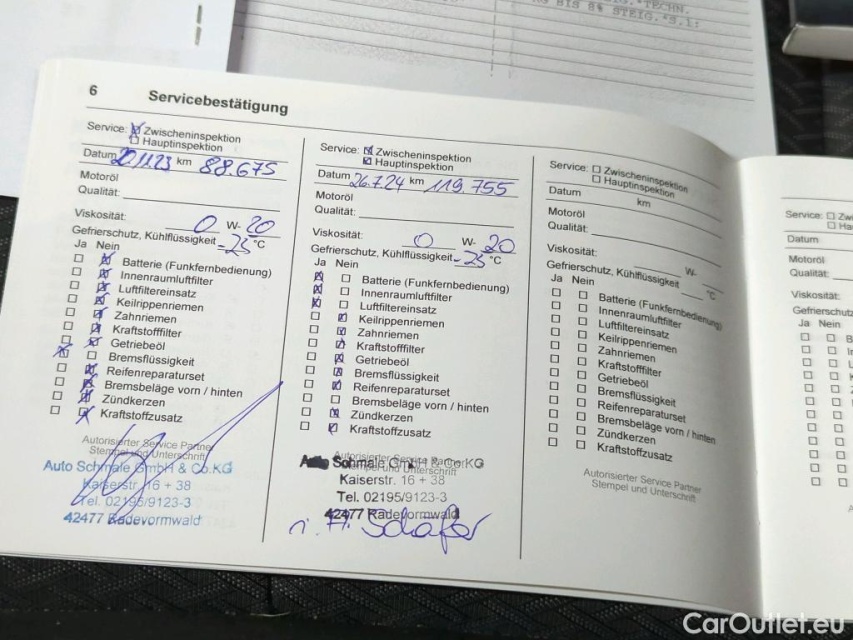 *TECHN.
BIS 8% STEIG.*S.1:
6 Servicebestätigung
Service: Zwischeninspektion
Hauptinspektion
Datum 20.11.23 km 88.675
Motoröl
Qualität:
Viskosität: 0 W- 20
Gefrierschutz, Kühlflüssigkeit -25 °C
Ja Nein
Batterie (Funkfernbedienung)
Innenraumluftfilter
Luftfiltereinsatz
Keilrippenriemen
Zahnriemen
Kraftstofffilter
Getriebeöl
Bremsflüssigkeit
Reifenreparaturset
Bremsbeläge vorn / hinten
Zündkerzen
Kraftstoffzusatz
Autorisierter Service Partner
Stempel und Unterschrift
Auto Schmale GmbH & Co.KG
Kaiserstr. 16 + 38
Tel. 02195/9123-3
42477 Radevormwald
Service: Zwischeninspektion
Hauptinspektion
Datum 26.7.24 km 119.755
Motoröl
Qualität:
Viskosität: 0 W- 20
Gefrierschutz, Kühlflüssigkeit -25 °C
Ja Nein
Batterie (Funkfernbedienung)
Innenraumluftfilter
Luftfiltereinsatz
Keilrippenriemen
Zahnriemen
Kraftstofffilter
Getriebeöl
Bremsflüssigkeit
Reifenreparaturset
Bremsbeläge vorn / hinten
Zündkerzen
Kraftstoffzusatz
Autorisierter Service Partner
Stempel und Unterschrift
Auto Schmale GmbH & Co.KG
Kaiserstr. 16 + 38
Tel. 02195/9123-3
42477 Radevormwald
i. A. Schäfer
Service: Zwischeninspektion
Hauptinspektion
Datum km
Motoröl
Qualität:
Viskosität: W-
Gefrierschutz, Kühlflüssigkeit °C
Ja Nein
Batterie (Funkfernbedienung)
Innenraumluftfilter
Luftfiltereinsatz
Keilrippenriemen
Zahnriemen
Kraftstofffilter
Getriebeöl
Bremsflüssigkeit
Reifenreparaturset
Bremsbeläge vorn / hinten
Zündkerzen
Kraftstoffzusatz
Autorisierter Service Partner
Stempel und Unterschrift
Service: Zwi
Ha
Datum
Motoröl
Qualität:
Viskosität:
Gefrierschutz
Ja Nein
CarOutlet.eu